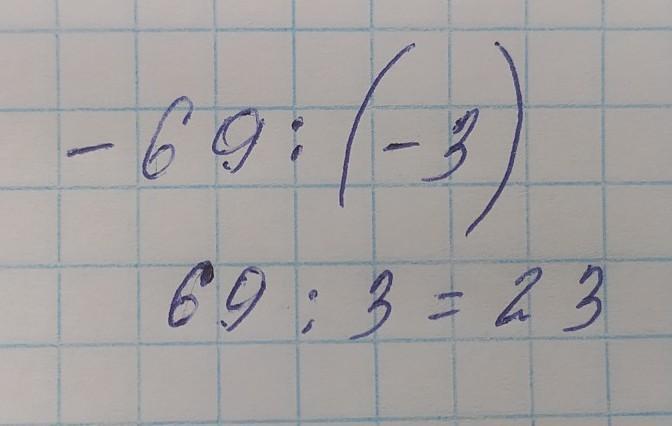 -69:(-3)
69:3=23